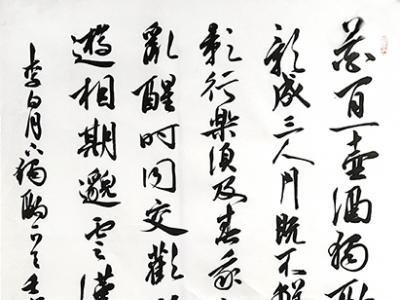 花間一壺酒獨酌
影成三人月既不解
影行樂須及春我
亂醒時同交歡
遊相期邈雲漢
李白月下獨酌